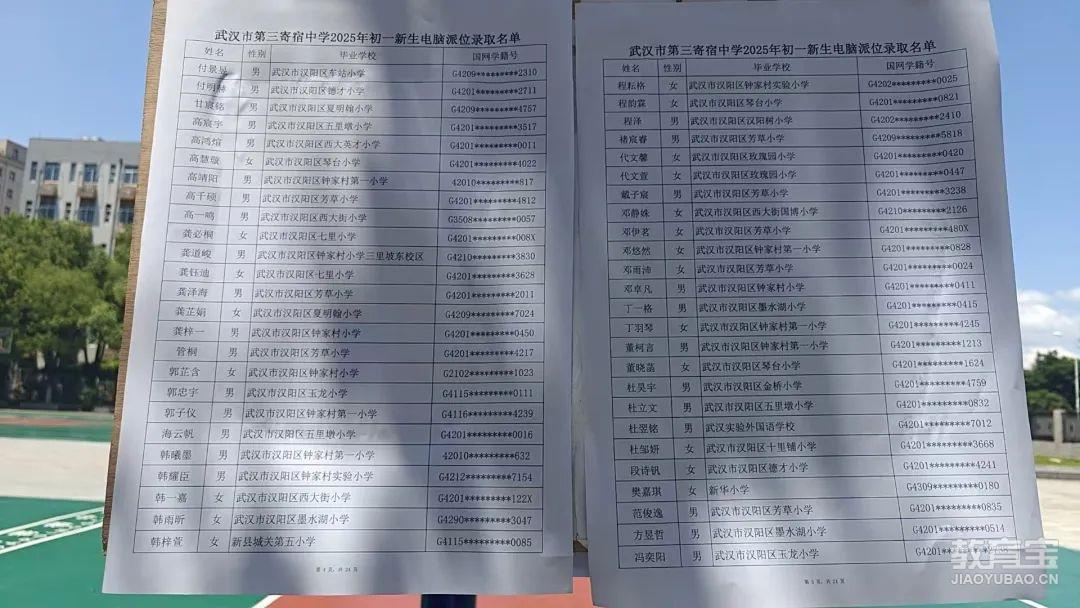 武汉市第三寄宿中学2025年初一新生电脑派位录取名单
姓名 性别 毕业学校 国网学籍号
付景昱 男 武汉市汉阳区车站小学 G4209*********2310
付明赫 男 武汉市汉阳区德才小学 G4201*********2711
甘宸铭 男 武汉市汉阳区夏明翰小学 G4209*********4757
高宸宇 男 武汉市汉阳区五里墩小学 G4201*********3517
高鸿煊 男 武汉市汉阳区西大英才小学 G4201*********0011
高慧璇 女 武汉市汉阳区琴台小学 G4201*********4022
高靖阳 男 武汉市汉阳区钟家村第一小学 42010*********817
高千硕 男 武汉市汉阳区芳草小学 G4201*********4812
高一鸣 男 武汉市汉阳区西大街小学 G3508*********0057
龚必桐 女 武汉市汉阳区七里小学 G4201*********008X
龚道峻 男 武汉市汉阳区钟家村小学三里坡东校区 G4210*********3830
龚钰迪 女 武汉市汉阳区七里小学 G4201*********3628
龚泽海 男 武汉市汉阳区芳草小学 G4201*********2011
龚芷娟 女 武汉市汉阳区夏明翰小学 G4209*********7024
龚梓一 男 武汉市汉阳区钟家村小学 G4201*********0450
管桐 男 武汉市汉阳区芳草小学 G4201*********4217
郭芷含 女 武汉市汉阳区钟家村小学 G2102*********1023
郭忠宇 男 武汉市汉阳区玉龙小学 G4115*********0111
郭子仪 男 武汉市汉阳区钟家村第一小学 G4116*********4239
海云帆 男 武汉市汉阳区五里墩小学 G4201*********0016
韩曦墨 男 武汉市汉阳区钟家村第一小学 42010*********632
韩耀臣 男 武汉市汉阳区钟家村实验小学 G4212*********7154
韩一嘉 女 武汉市汉阳区西大街小学 G4201*********122X
韩雨昕 女 武汉市汉阳区墨水湖小学 G4290*********3047
韩梓萱 女 新县城关第五小学 G4115*********0085
第 4 页, 共 24 页
武汉市第三寄宿中学2025年初一新生电脑派位录取名单
姓名 性别 毕业学校 国网学籍号
程耘格 女 武汉市汉阳区钟家村实验小学 G4202*********0025
程韵霖 女 武汉市汉阳区琴台小学 G4201*********0821
程泽 男 武汉市汉阳区汉阳树小学 G4202*********2410
褚宸睿 男 武汉市汉阳区芳草小学 G4209*********5818
代文馨 女 武汉市汉阳区玫瑰园小学 G4201*********0420
代文萱 女 武汉市汉阳区玫瑰园小学 G4201*********0447
戴子宸 男 武汉市汉阳区芳草小学 G4201*********3238
邓静姝 女 武汉市汉阳区西大街国博小学 G4210*********2126
邓伊茗 女 武汉市汉阳区芳草小学 G4201*********480X
邓悠然 女 武汉市汉阳区钟家村第一小学 G4201*********0828
邓雨沛 女 武汉市汉阳区芳草小学 G4201*********0024
邓卓凡 男 武汉市汉阳区钟家村第一小学 G4201*********0411
丁一格 男 武汉市汉阳区墨水湖小学 G4201*********0415
丁羽琴 女 武汉市汉阳区钟家村第一小学 G4201*********4245
董柯言 男 武汉市汉阳区钟家村第一小学 G4201*********1213
董晓菡 女 武汉市汉阳区琴台小学 G4201*********1624
杜昊宇 男 武汉市汉阳区金桥小学 G4201*********4759
杜立文 男 武汉市汉阳区五里墩小学 G4201*********0832
杜翌铭 男 武汉实验外国语学校 G4201*********7012
杜邹妍 女 武汉市汉阳区十里铺小学 G4201*********3668
段诗钒 女 武汉市汉阳区德才小学 G4201*********4241
樊嘉琪 女 新华小学 G4309*********0180
范俊逸 男 武汉市汉阳区芳草小学 G4201*********0835
方昱哲 男 武汉市汉阳区墨水湖小学 G4201*********0514
冯奕阳 男 武汉市汉阳区玉龙小学
第 3 页, 共 24 页
教育宝
JIAOYUBAO.CN